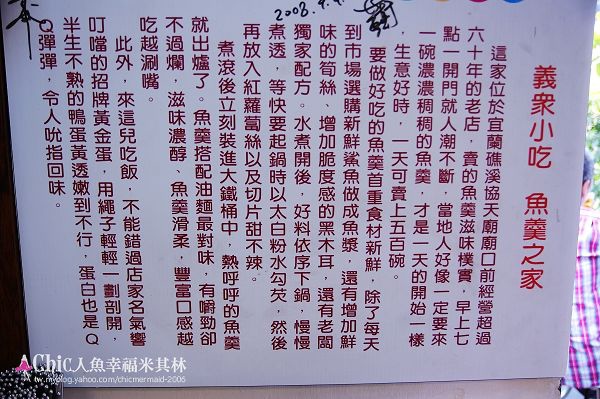 2008.9.9.
義衆小吃　魚羹之家
這家位於宜蘭礁溪協天廟廟口前經營超過
六十年的老店，賣的魚羹滋味樸實，早上七
點一開門就人潮不斷，當地人好像一定要來
一碗濃濃稠稠的魚羹，才是一天的開始一樣
，生意好時，一天可賣上五百碗。
要做好吃的魚羹首重食材新鮮，除了每天
到市場選購新鮮鯊魚做成魚漿，還有增加鮮
味的筍絲、增加脆度感的黑木耳，還有老闆
獨家配方。水煮開後，好料依序下鍋，慢慢
煮透，等快要起鍋時以太白粉水勾芡，然後
再放入紅蘿蔔絲以及切片甜不辣。
煮滾後立刻裝進大鐵桶中，熱呼呼的魚羹
就出爐了。魚羹搭配油麵最對味，有嚼勁卻
不過爛，滋味濃醇、魚羹滑柔，豐富口感越
吃越涮嘴。
此外，來這兒吃飯，不能錯過店家名氣響
叮噹的招牌黃金蛋，用繩子輕輕一劃剖開，
半生不熟的鴨蛋黃透嫩到不行，蛋白也是Q
Q彈彈，令人吮指回味。
Chic人魚幸福米其林
tw.myblog.yahoo.com/chicmermaid-2006